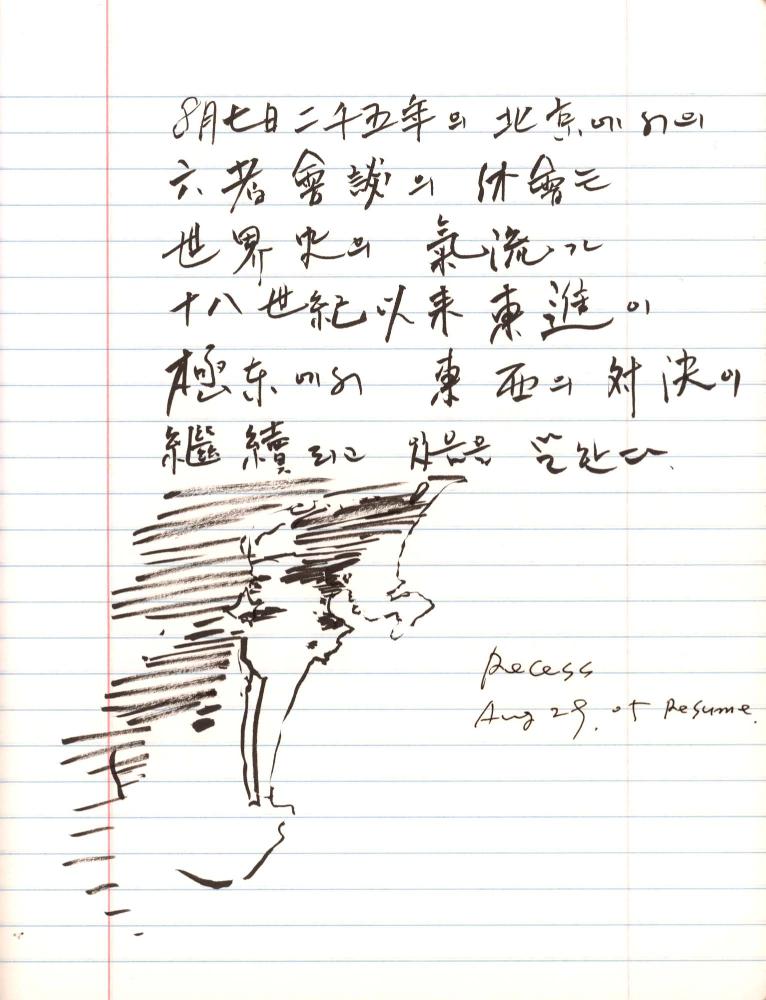 8月七日二千五年의 北京에서의
六者會談의 休會는
世界史의 氣流가
十八世紀以来 東進이
極东에서 東西의 対決이
繼續되고 있음을 뜻한다.
Recess
Aug 29. 05 Resume.